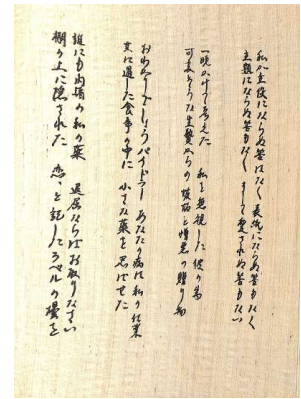 私が主役にならぬ筈はなく 表紙にならぬ筈もなく
主題にならぬ筈もなく まして愛されぬ筈もない
一晩かけて考えた 私を無視した彼の為
可哀そうな生贄からの 嫉妬と憎悪の贈り物
あなたの病は私の仕業
共に過した食事の中に 小さな薬を忍ばせた
誰にも内緒の私の薬 退屈ならばお取りなさい
棚の上に隠された 恋、と記したラベルの壜を